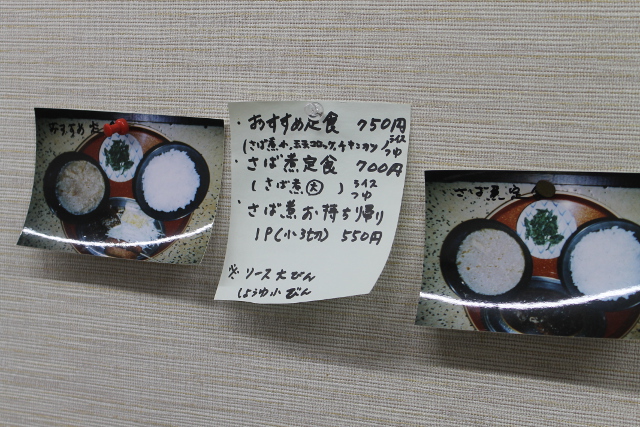 おすすめ定
・おすすめ定食 750円
(さば煮小、玉子コロッケ、チキンカツ) ライス
つゆ
・さば煮定食 700円
(さば煮大) ライス
つゆ
・さば煮お持ち帰り
1P(小3切) 550円
※ソース大びん
しょうゆ小びん
さば煮定